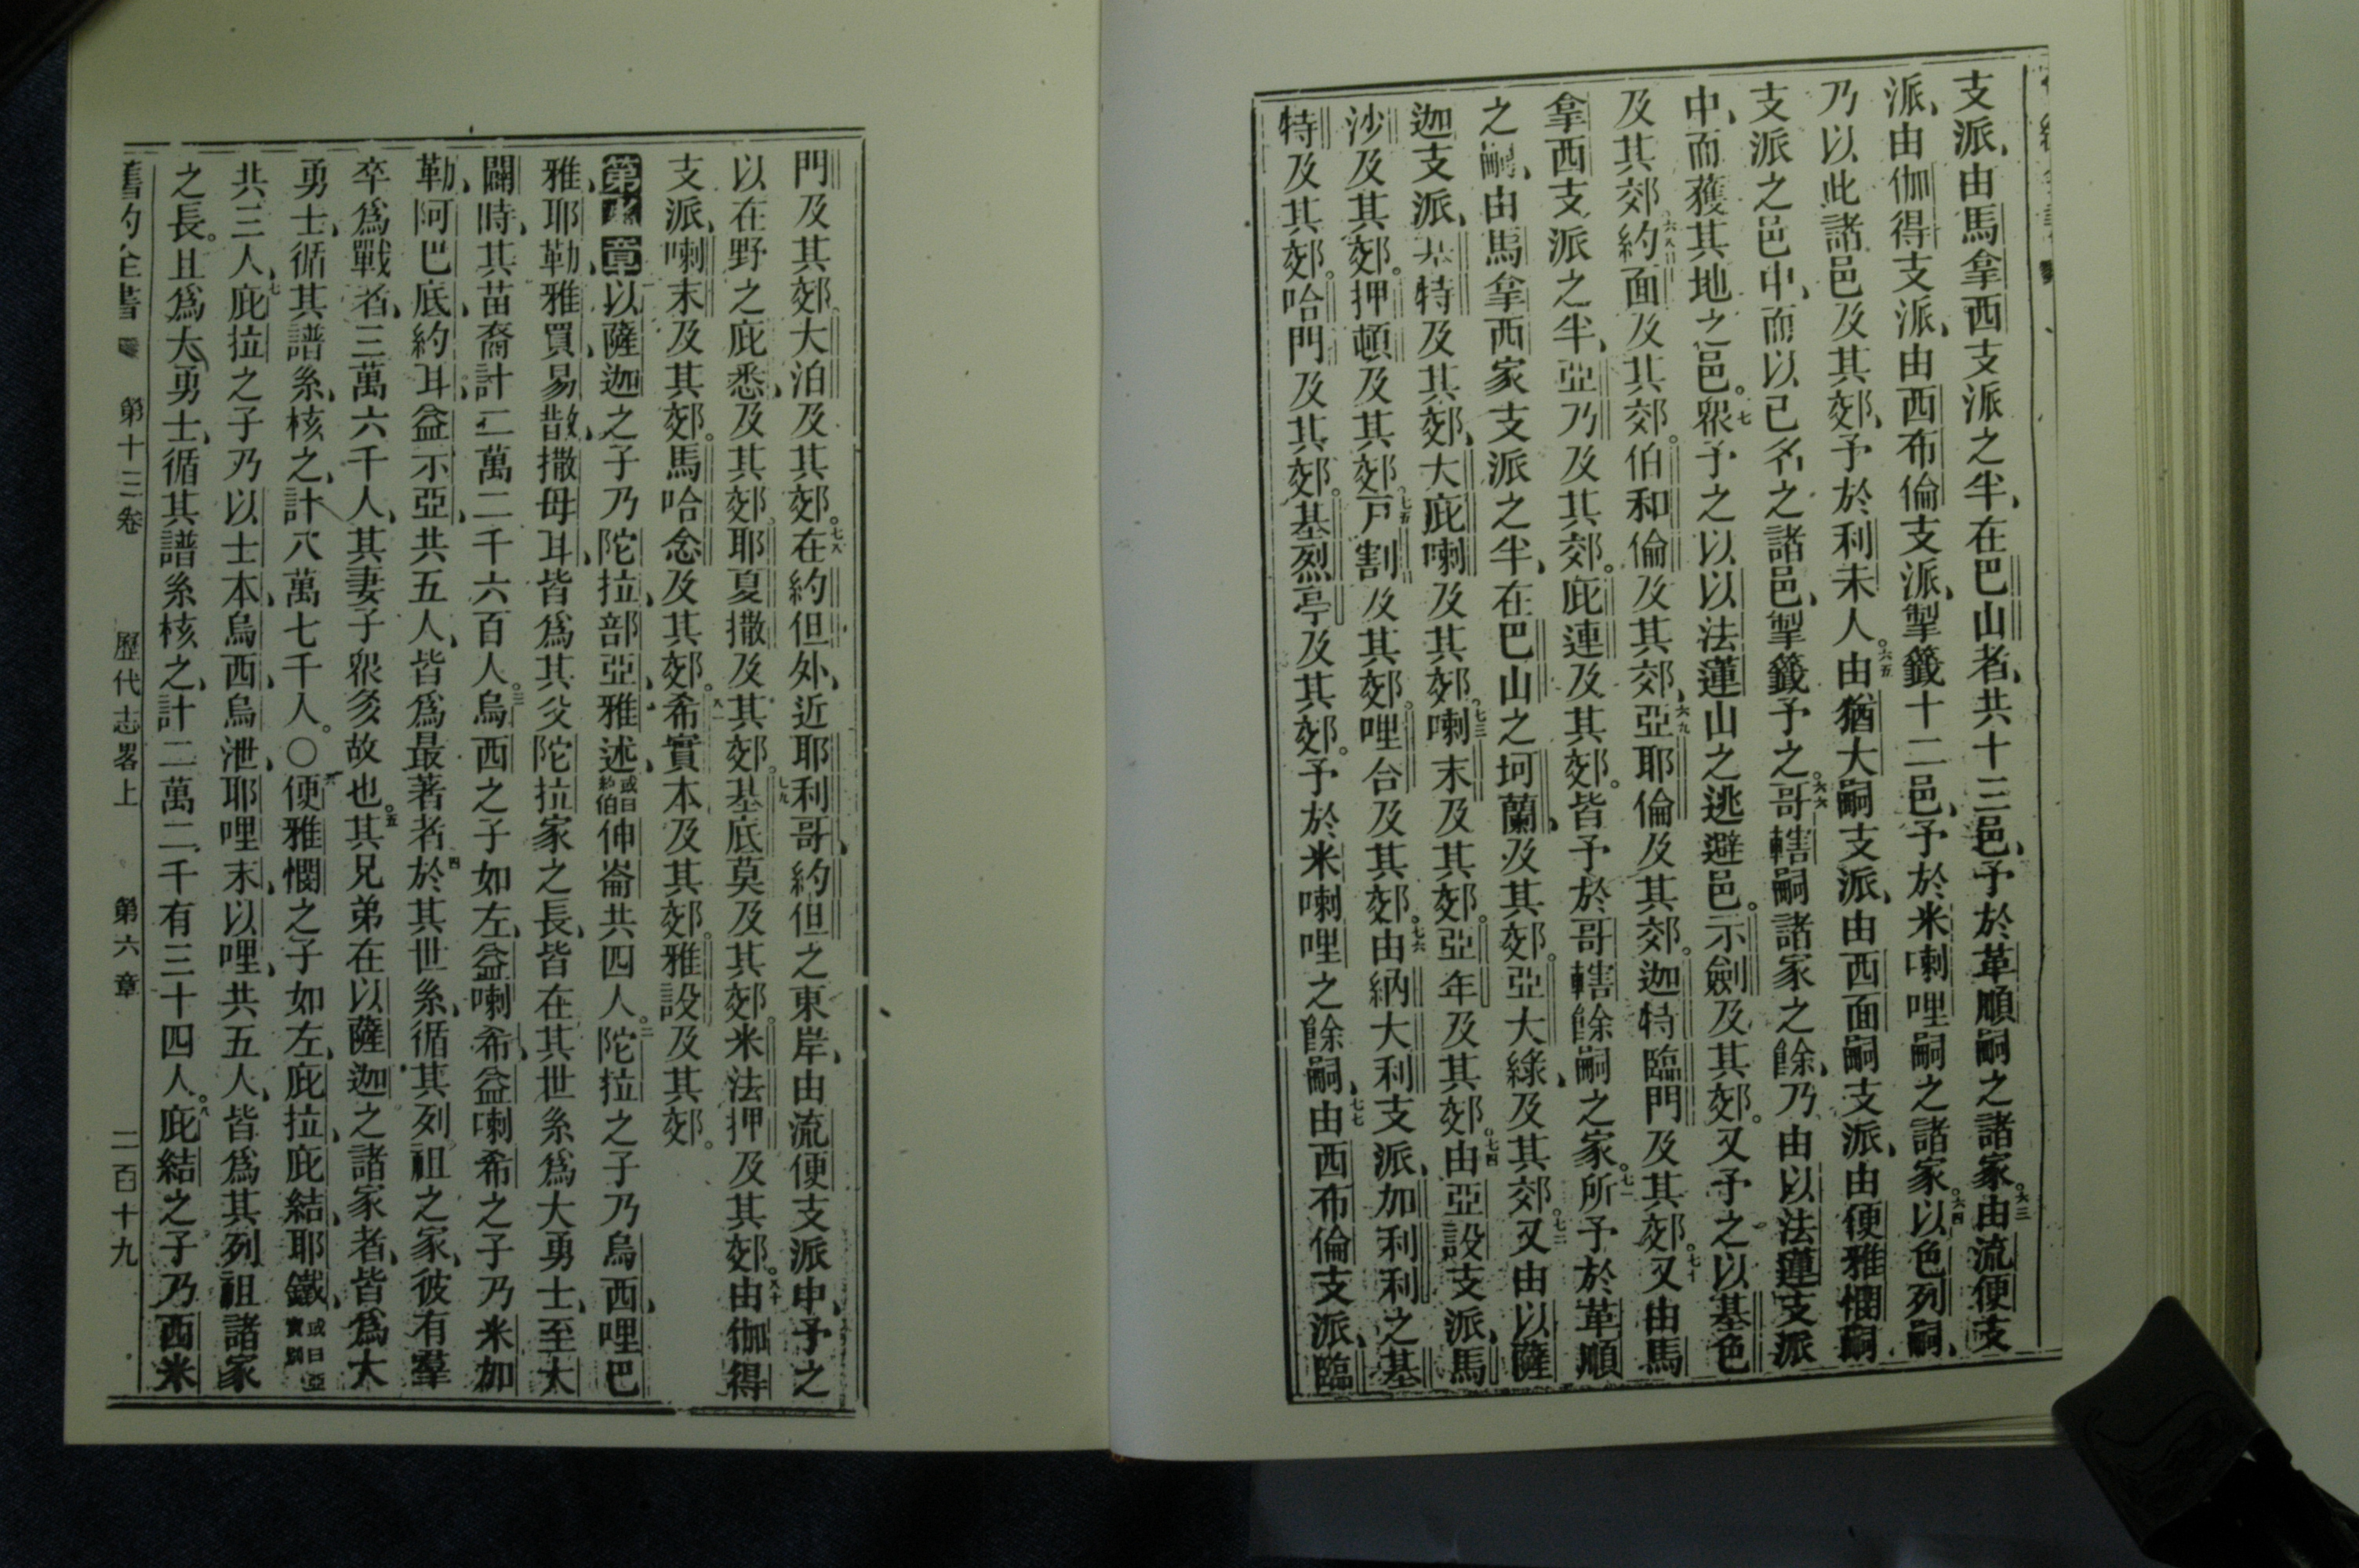 支派、由馬拿西支派之半、在巴山者、共十三邑、予於革順嗣之諸家。六三由流便支
派、由伽得支派、由西布倫支派、掣籤十二邑、予於米喇哩嗣之諸家。六四以色列嗣、
乃以此諸邑及其郊、予於利未人。六五由猶大嗣支派、由西面嗣支派、由便雅憫嗣
支派之邑中、而以已名之諸邑、掣籤予之。六六哥轄嗣諸家之餘、乃由以法蓮支派
中、而獲其地之邑。七眾予之以以法蓮山之逃避邑。示劍及其郊。又予之以基色
及其郊。六八約面及其郊。伯和倫及其郊、六九亞耶倫及其郊。迦特臨門及其郊。七十又由馬
拿西支派之半、亞乃及其郊。庇連及其郊。皆予於哥轄餘嗣之家。七一所予於革順
之嗣、由馬拿西家支派之半、在巴山之坷蘭、及其郊。亞大綠、及其郊。七二又由以薩
迦支派、基特及其郊、大庇喇及其郊。七三喇末及其郊。亞年及其郊。七四由亞設支派、馬
沙及其郊。押頓及其郊。七五戸割及其郊。哩合及其郊。七六由納大利支派、加利利之基
特及其郊。哈門及其郊。基烈亭及其郊。予於米喇哩之餘嗣、七七由西布倫支派、臨
門及其郊。大泊及其郊。七八在約但外、近耶利哥、約但之東岸、由流便支派中、予之
以在野之庇悉、及其郊。耶夏撒及其郊。七九基底莫及其郊。米法押及其郊。八十由伽得
支派、喇末及其郊。馬哈念及其郊。八一希實本及其郊。雅設及其郊。
章一以薩迦之子乃陀拉、部亞、雅述、或曰約伯伸崙共四人。二陀拉之子乃烏西、哩巴
雅、耶勒、雅買、易散、撒母耳、皆爲其父陀拉家之長、皆在其世系爲大勇士、至大
闢時、其苗裔計二萬二千六百人。三烏西之子如左、益喇希、益喇希之子乃米加
勒、阿巴底、約耳、益示亞、共五人、皆爲最著者、四於其世系、循其列祖之家、彼有羣
卒爲戰者、三萬六千人、其妻子眾多故也。五其兄弟在以薩迦之諸家者、皆爲大
勇士、循其譜系、核之、計八萬七千人。〇六便雅憫之子如左、庇拉、庇結、耶鐵、或曰亞實別
共三人、七庇拉之子乃以士本、烏西、烏泄、耶哩末、以哩、共五人、皆爲其列祖諸家
之長。且爲大勇士、循其譜系核之、計二萬二千有三十四人。八庇結之子乃西米
舊約全書 第十三卷 歷代志畧上 第六章 二百十九